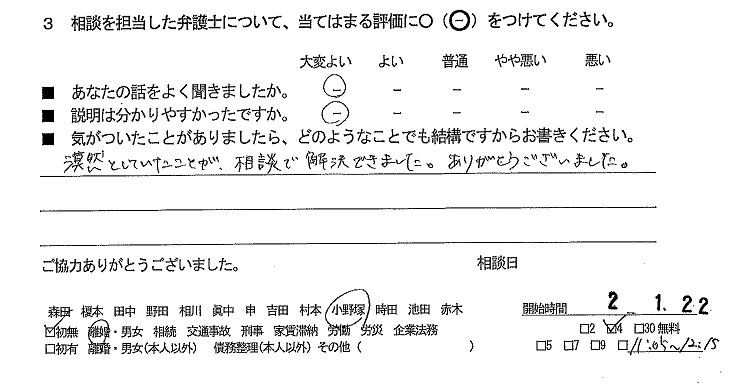 3 相談を担当した弁護士について、当てはまる評価に○（㊀）をつけてください。
大変よい よい 普通 やや悪い 悪い
■ あなたの話をよく聞きましたか。 － － － － －
■ 説明は分かりやすかったですか。 － － － － －
■ 気がついたことがありましたら、どのようなことでも結構ですからお書きください。
漠然としていたことが、相談で解決できました。ありがとうございました。
ご協力ありがとうございました。 相談日
森田 榎本 田中 野田 相川 眞中 申 吉田 村本 小野塚 時田 池田 赤木 開始時間 2 1.22
☑初無 離婚・男女 相続 交通事故 刑事 家賃滞納 労働 労災 企業法務 □2 ☑4 □30 無料
□初有 離婚・男女(本人以外) 債務整理(本人以外) その他 ( ) □5 □7 □9 □ 11:05～12:15